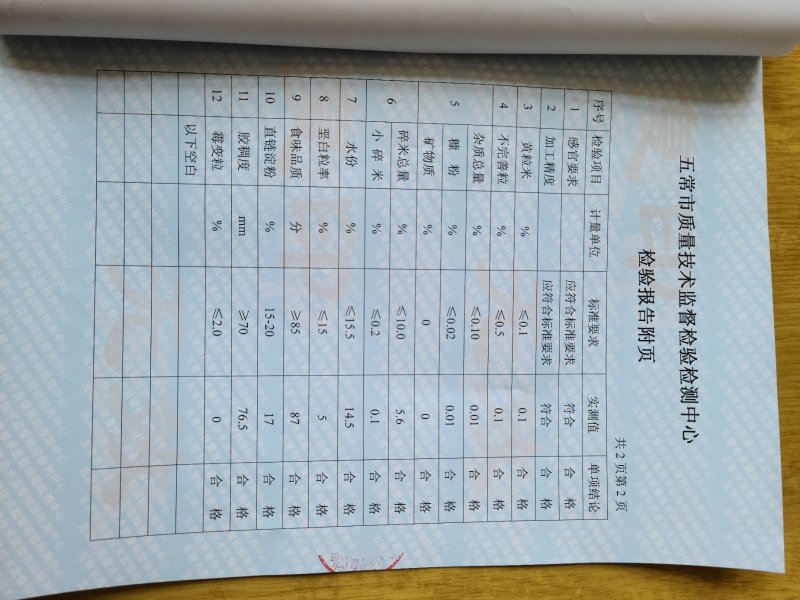 五常市质量技术监督检验检测中心
检验报告附页
共 2 页第 2 页
序号 检验项目 计量单位 标准要求 实测值 单项结论
1 感官要求 应符合标准要求 符合 合格
2 加工精度 应符合标准要求 符合 合格
3 黄粒米 % ≤0.1 0.1 合格
4 不完善粒 % ≤0.5 0.1 合格
5 杂质总量 % ≤0.10 0.01 合格
糠粉 % ≤0.02 0.01 合格
矿物质 0 0 合格
6 碎米总量 % ≤10.0 5.6 合格
小碎米 % ≤0.2 0.1 合格
7 水份 % ≤15.5 14.5 合格
8 垩白粒率 % ≤15 5 合格
9 食味品质 分 ≥85 87 合格
10 直链淀粉 % 15-20 17 合格
11 胶稠度 mm ≥70 76.5 合格
12 霉变粒 % ≤2.0 0 合格
以下空白